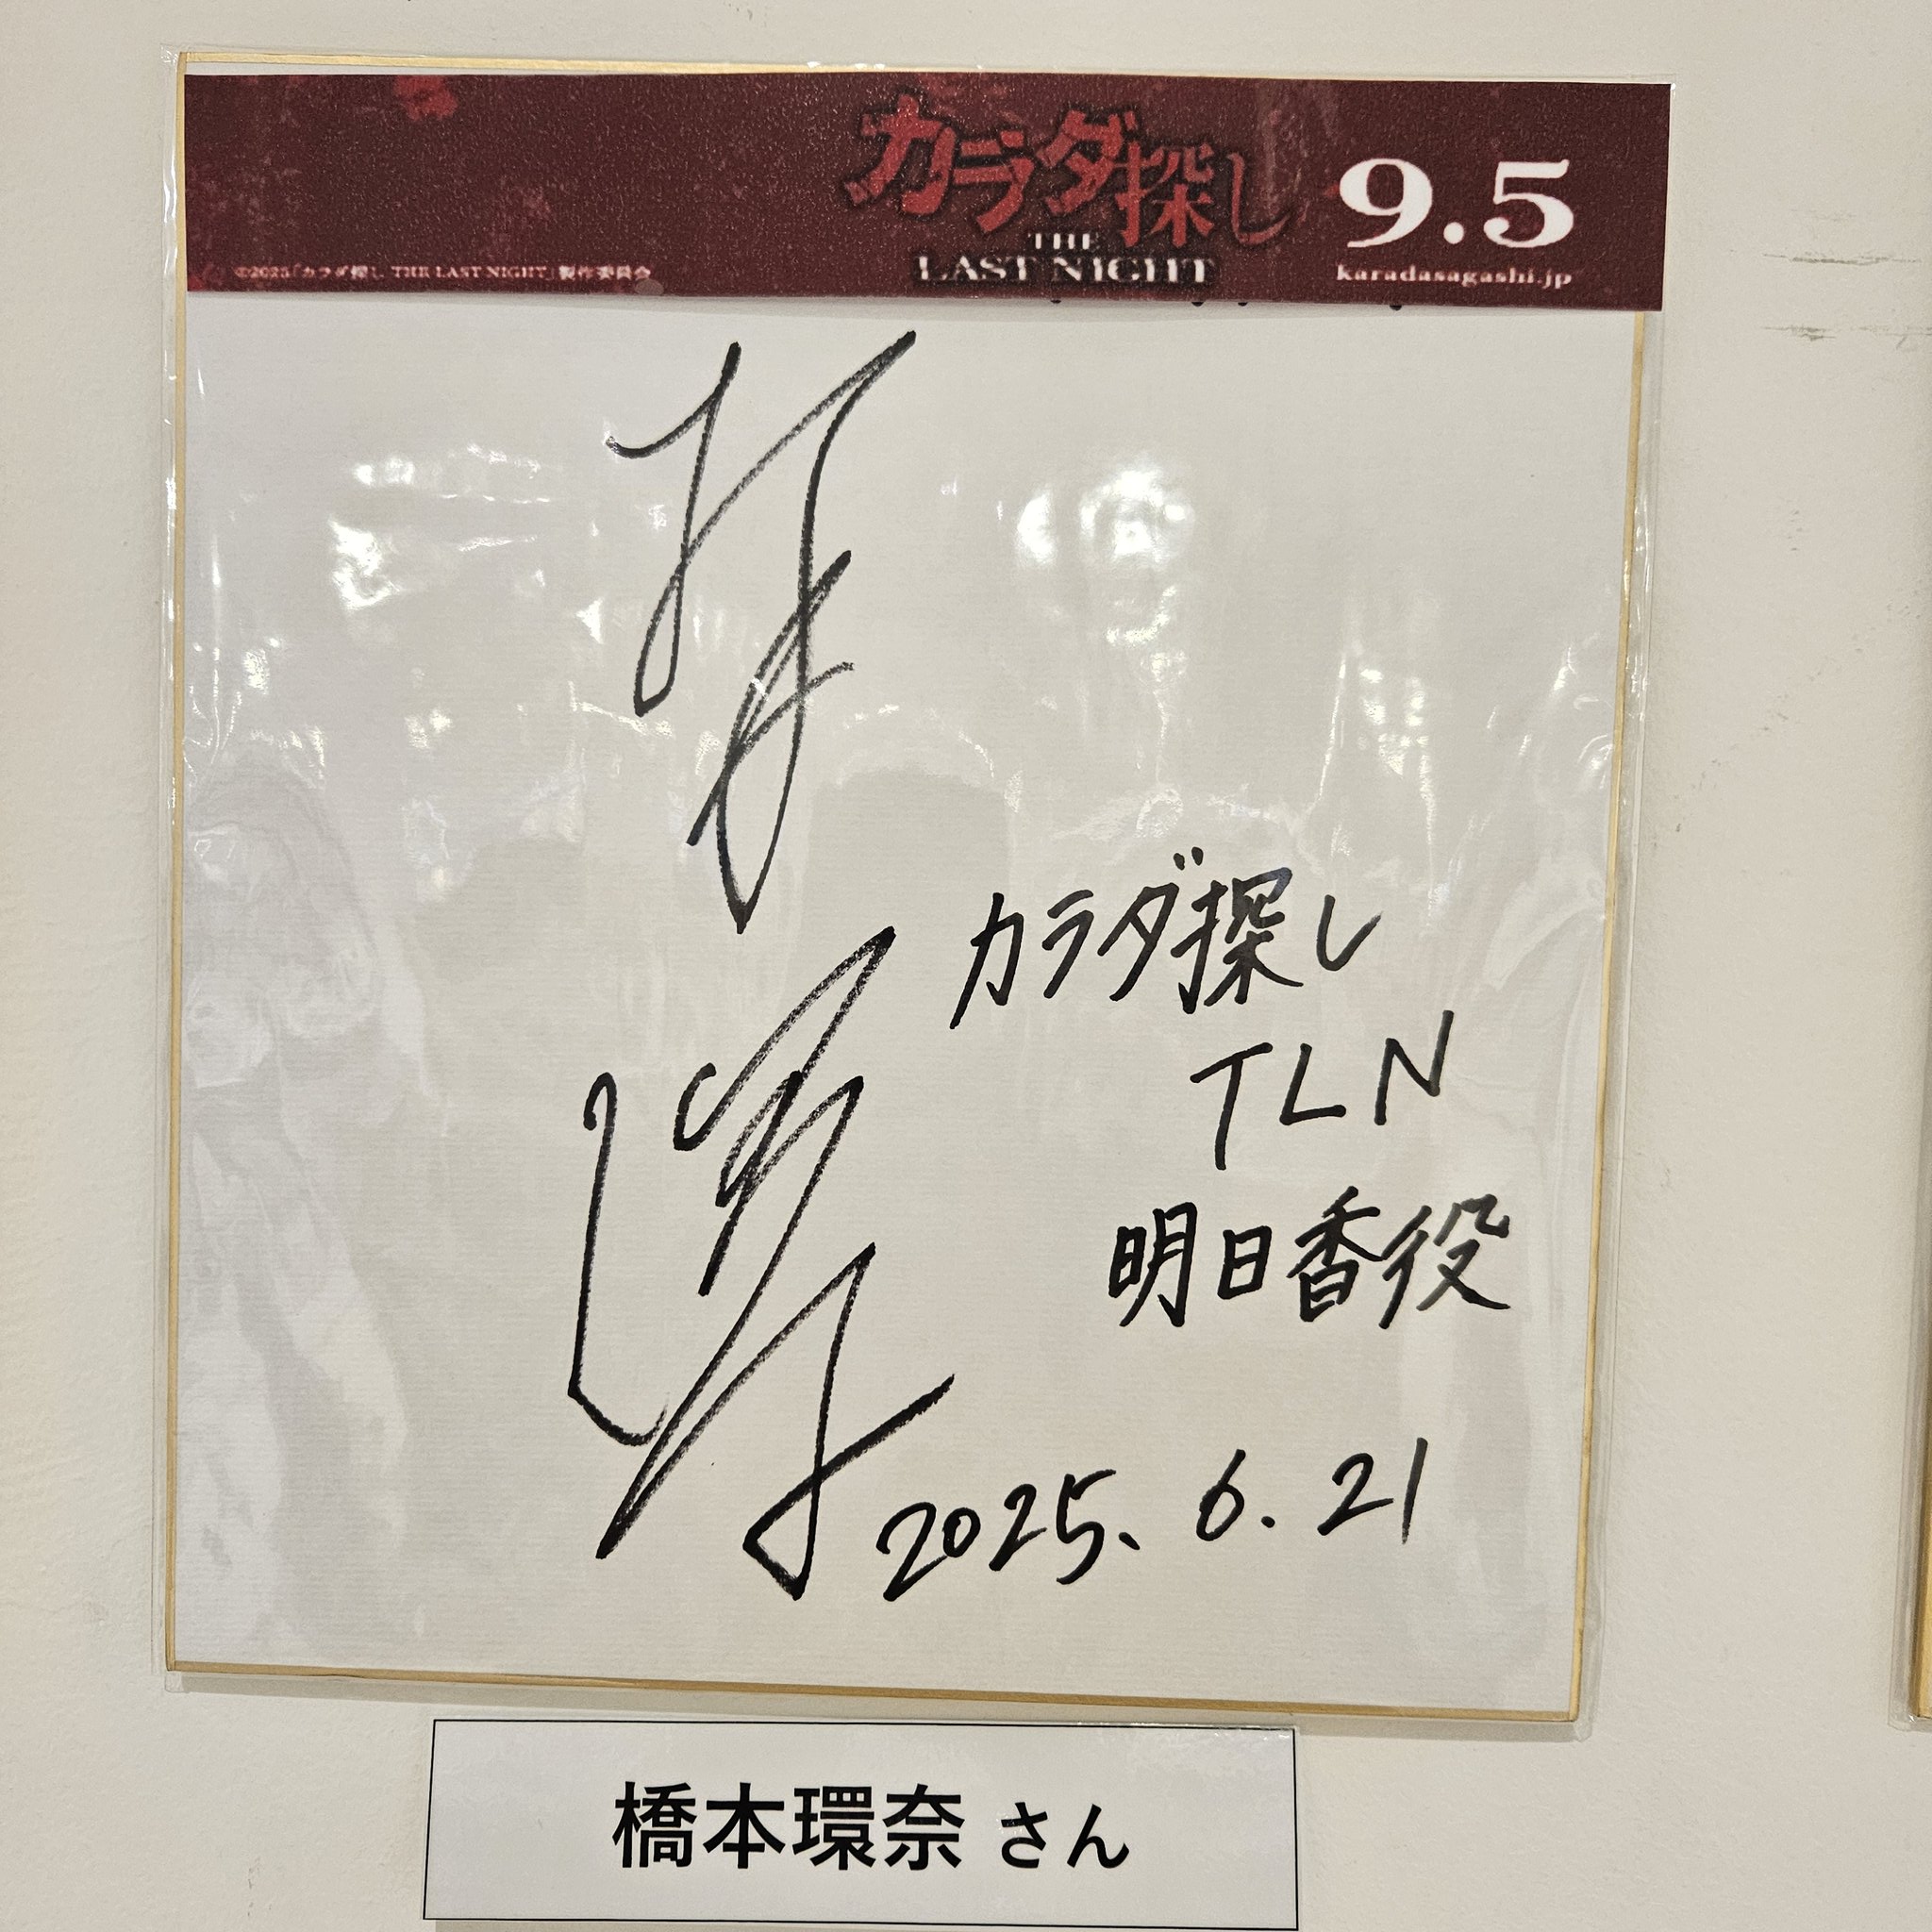 カラダ探し
THE
LAST NIGHT
9.5
karadasagashi.jp
©2025「カラダ探し THE LAST NIGHT」製作委員会
カラダ探し
TLN
明日香役
2025. 6. 21
橋本環奈 さん